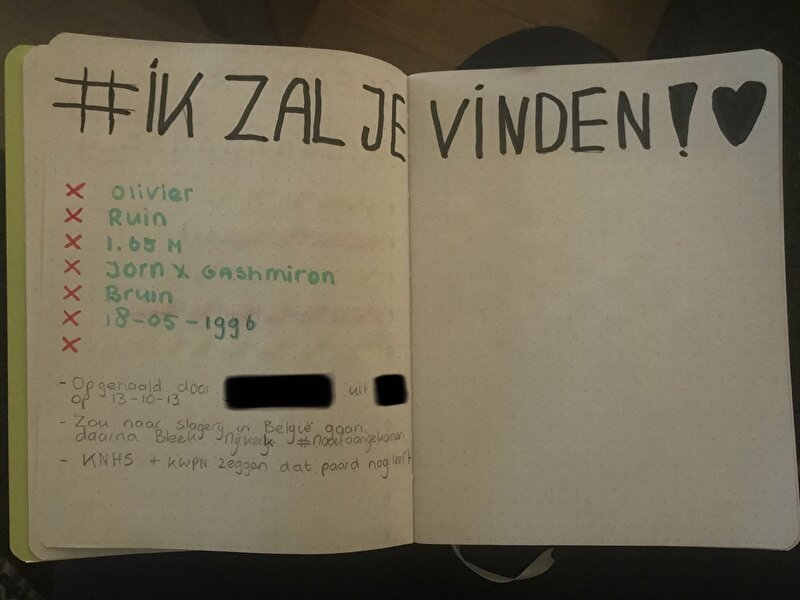 #iK ZAL JE VINDEN!
Olivier
Ruin
1.65 M
Jorn x Cashmiron
Bruin
18-05-1996
- Opgehaald door uit
op 13-10-13
- Zou naar slagerij in België gaan
daarna Bleek Nijkerk #nooitaangekomen
- KNHS + KWPN zeggen dat paard nog leeft